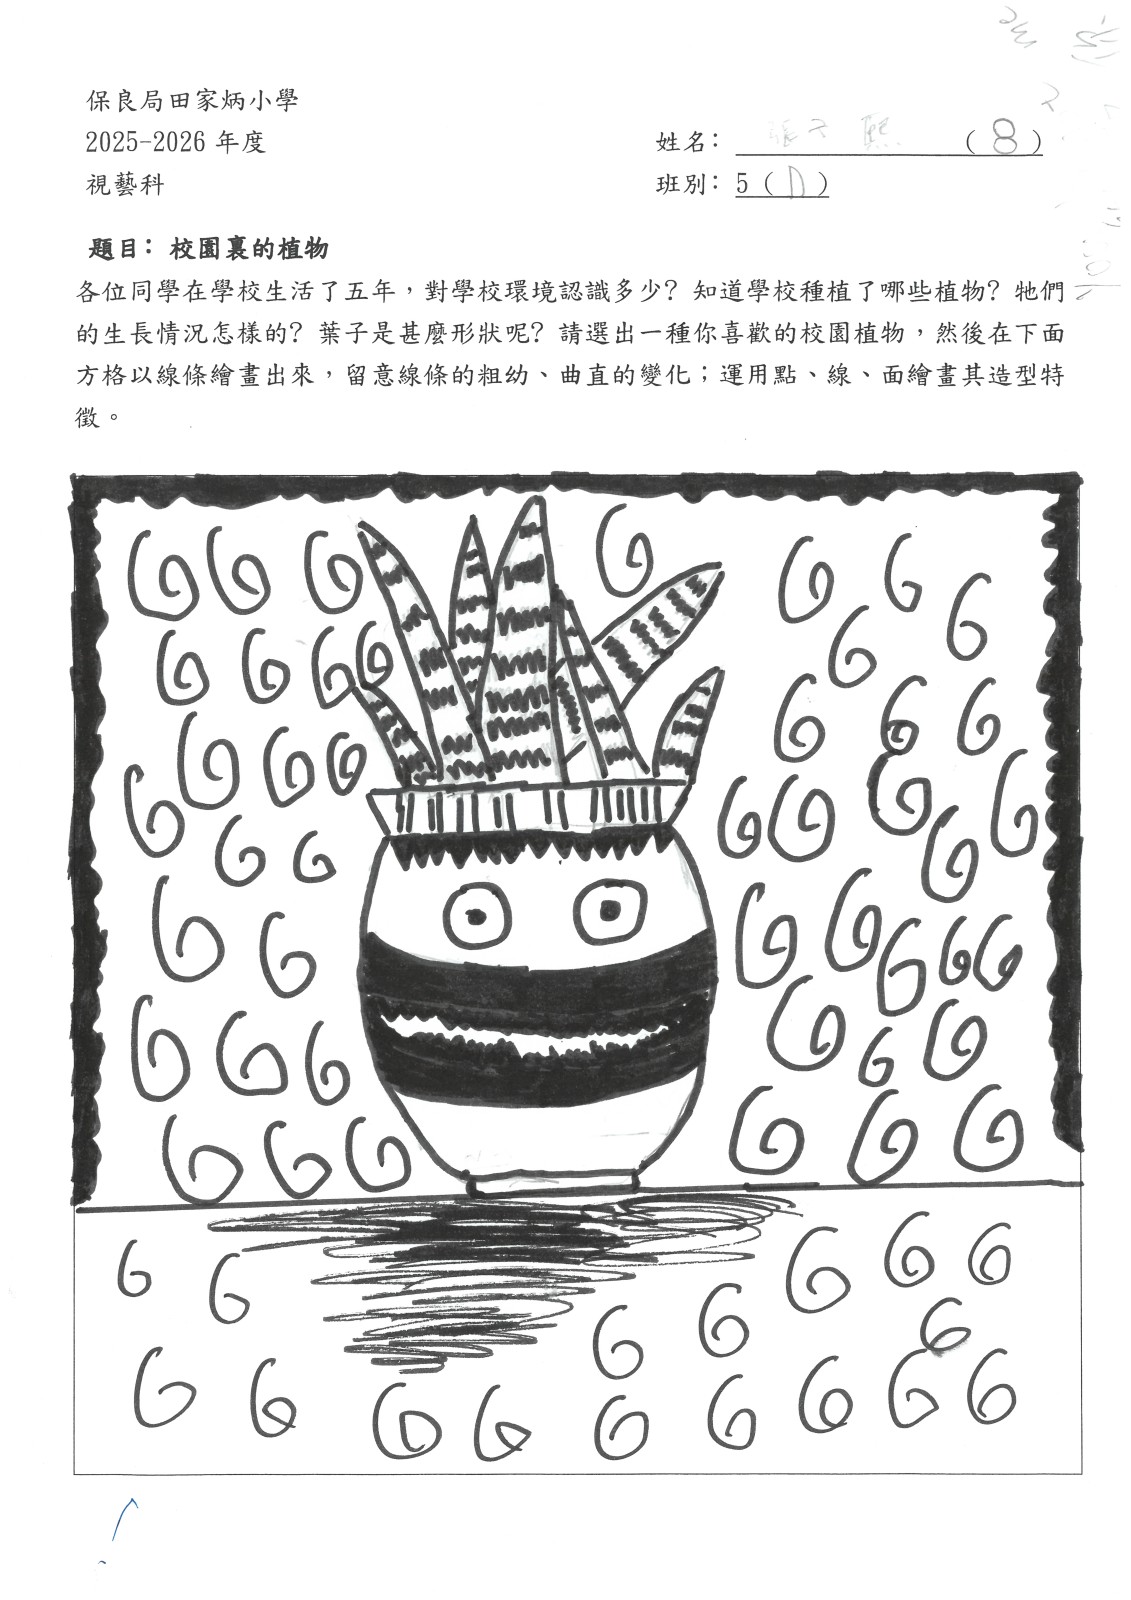 保良局田家炳小學
2025-2026 年度
姓名： 張 熙 (8)
視藝科
班別： 5 ( D )
題目： 校園裏的植物
各位同學在學校生活了五年，對學校環境認識多少？知道學校種植了哪些植物？牠們
的生長情況怎樣的？葉子是甚麼形狀呢？請選出一種你喜歡的校園植物，然後在下面
方格以線條繪畫出來，留意線條的粗幼、曲直的變化；運用點、線、面繪畫其造型特
徵。